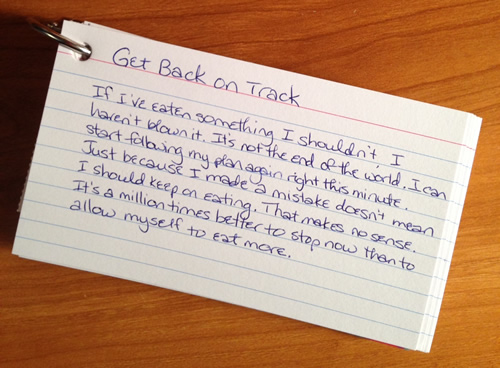 Get Back on Track
If I've eaten something I shouldn't, I
haven't blown it. It's not the end of the world. I can
start following my plan again right this minute.
Just because I made a mistake doesn't mean
I should keep on eating. That makes no sense.
It's a million times better to stop now than to
allow myself to eat more.